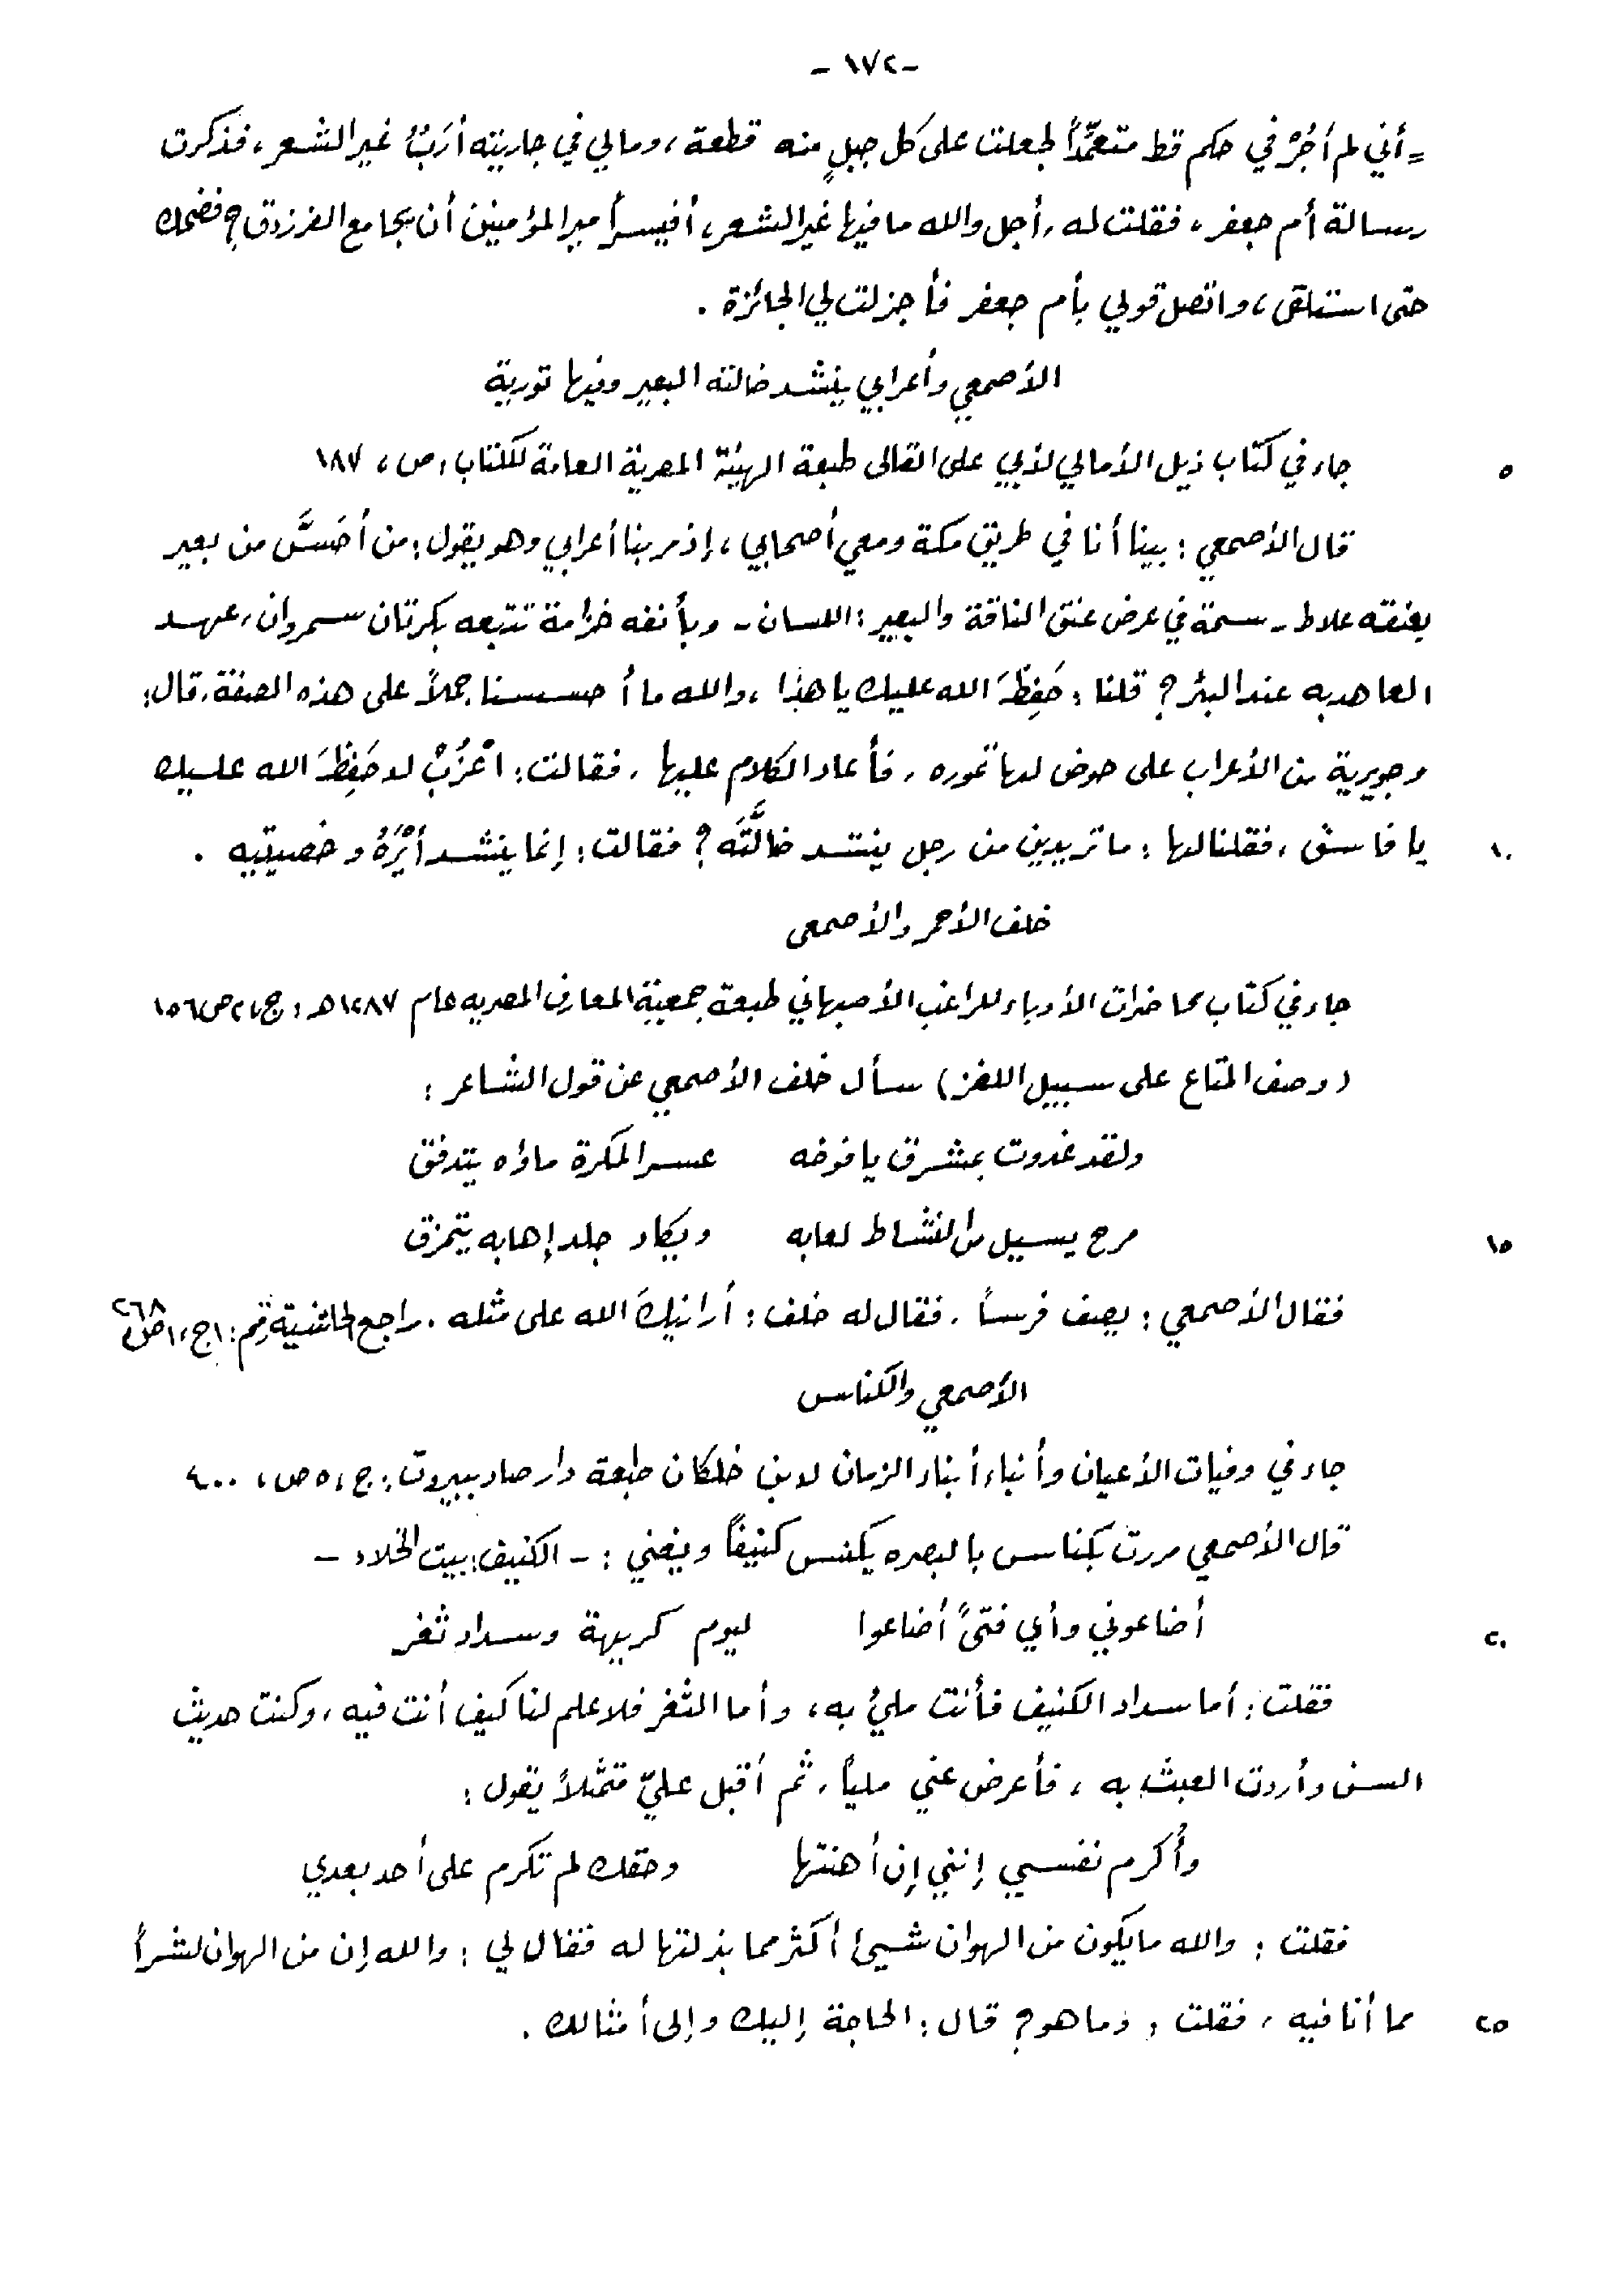 -١٧٢-
= أني لم أَجُرْ في حكم قط متعمِّداً لجعلت على كل جبلٍ منه قطعة، ومالي في جاريته أرَبٌ غير الشعر، فذكرت
رسالة أم جعفر، فقلت له، أجل والله ما فيها غير الشعر، أفيسرُّ أمير المؤمنين أن يجامع الفرزدق؟ فضحك
حتى استلقى، واتصل قولي بأم جعفر فأجزلت لي الجائزة .
الأصمعي وأعرابي ينشد ضالته البعير وفيها تورية
٥ جاء في كتاب ذيل الأمالي لأبي علي القالي طبعة الهيئة المصرية العامة للكتاب، ص، ١٨٧
قال الأصمعي : بينا أنا في طريق مكة ومعي أصحابي، إذ مر بنا أعرابي وهو يقول: من أحَسَّ من بعير
بعنقه علاط - سمة في عرض عنق الناقة والبعير: اللسان - وبأنفه خزامة تتبعه بكرتان سمروان، عهد
العاهد به عند البئر؟ قلنا : حَفِظَ الله عليك يا هذا، والله ما أحسسنا جملاً على هذه الصفة، قال:
وجويرية من الأعراب على حوض لها تموره، فأعاد الكلام عليها، فقالت: اعْزُبْ لا حَفِظَ الله عليك
١٠ يا فاسق، فقلنا لها : ما تريدين من رجل ينشد ضالَّتَه؟ فقالت: إنما ينشد أيْرَهُ وخصيتيه .
خلف الأحمر والأصمعي
جاء في كتاب محاضرات الأدباء للراغب الأصبهاني طبعة جمعية المعارف المصريه عام ١٢٨٧هـ: ج، ٢ ص ١٥٦
(وصف المتاع على سبيل اللغز) سأل خلف الأصمعي عن قول الشاعر :
ولقد غدوت بمشرق يافوخه عسر المكرة ماؤه يتدفق
١٥ مرح يسيل من النشاط لعابه ويكاد جلد إهابه يتمزق
فقال الأصمعي : يصف فرساً، فقال له خلف : أرانيكَ الله على مثله . راجع الحاشية رقم: ١ ج، ١ ص ٢٦٨
الأصمعي والكناس
جاء في وفيات الأعيان وأنباء أبناء الزمان لابن خلكان طبعة دار صادر ببيروت: ج، ٥ ص، ٤٠٠
قال الأصمعي مررت بكناس بالبصره يكنس كنيفاً ويغني : - الكنيف: بيت الخلاء -
٢٠ أضاعوني وأي فتىً أضاعوا ليوم كريهة وسداد ثغر
فقلت: أما سداد الكنيف فأنت مليٌ به، وأما الثغر فلا علم لنا كيف أنت فيه، وكنت حديث
السن وأردت العبث به، فأعرض عني ملياً، ثم أقبل عليّ متمثلاً يقول :
وأُكرم نفسي إنني إن أهنتها وحقك لم تكرم على أحد بعدي
فقلت : والله ما يكون من الهوان شيئ أكثر مما بذلتها له فقال لي : والله إن من الهوان لشراً
٢٥ مما أنا فيه، فقلت : وما هو؟ قال: الحاجة إليك وإلى أمثالك .